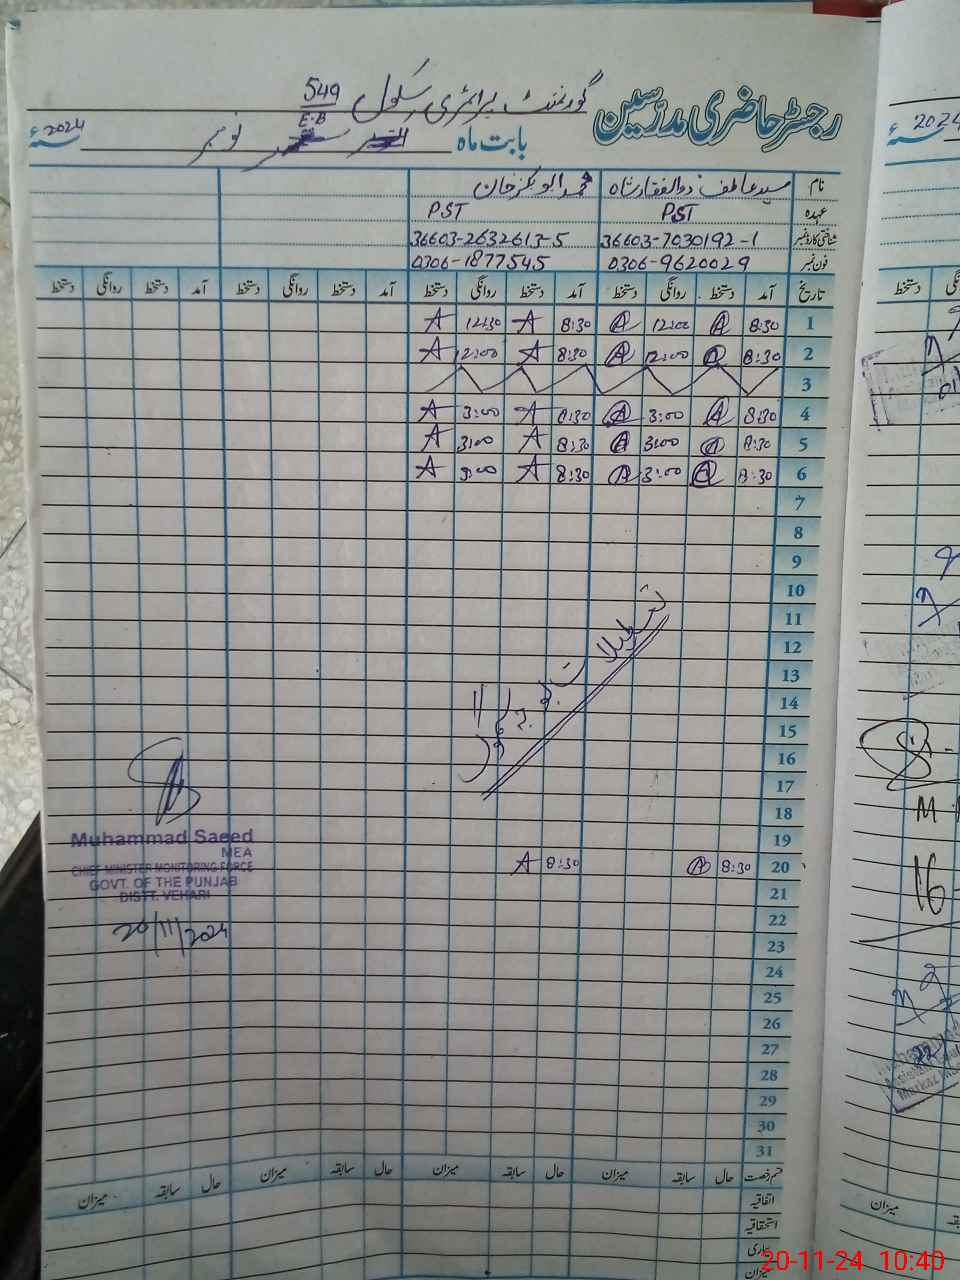 رجسٹر حاضری مدرسین گورنمنٹ پرائمری سکول 549 E.B
بابت ماہ نومبر 2024ء
نام سید عاطف ذوالفقار شاہ محمد ابوبکر خان
عہدہ PST PST
شناختی کارڈ نمبر 36603-7030192-1 36603-2632613-5
فون نمبر 0306-9620029 0306-1877545
تاریخ آمد دستخط روانگی دستخط آمد دستخط روانگی دستخط آمد دستخط روانگی دستخط آمد دستخط روانگی دستخط
1 8:30 A 12:00 A 8:30 A 12:30 A
2 8:30 A 12:00 A 8:30 A 12:00 A
3
4 8:30 A 3:00 A 8:30 A 3:00 A
5 8:30 A 3:00 A 8:30 A 3:00 A
6 8:30 A 3:00 A 8:30 A 3:00 A
7
8
9
10
11
12
13
14
15
16
17
18
19
20 8:30 A 8:30 A
21
22
23
24
25
26
27
28
29
30
31
تعطیلات
Muhammad Saeed
MEA
CHIEF MINISTER MONITORING FORCE
GOVT. OF THE PUNJAB
DISTT. VEHARI
20/11/2024
قسم رخصت حال سابقہ میزان حال سابقہ میزان حال سابقہ میزان حال سابقہ میزان
اتفاقیہ
استحقاقیہ
بیماری
میزان
2024ء
دستخط
M
16
22
میزان
20-11-24 10:40